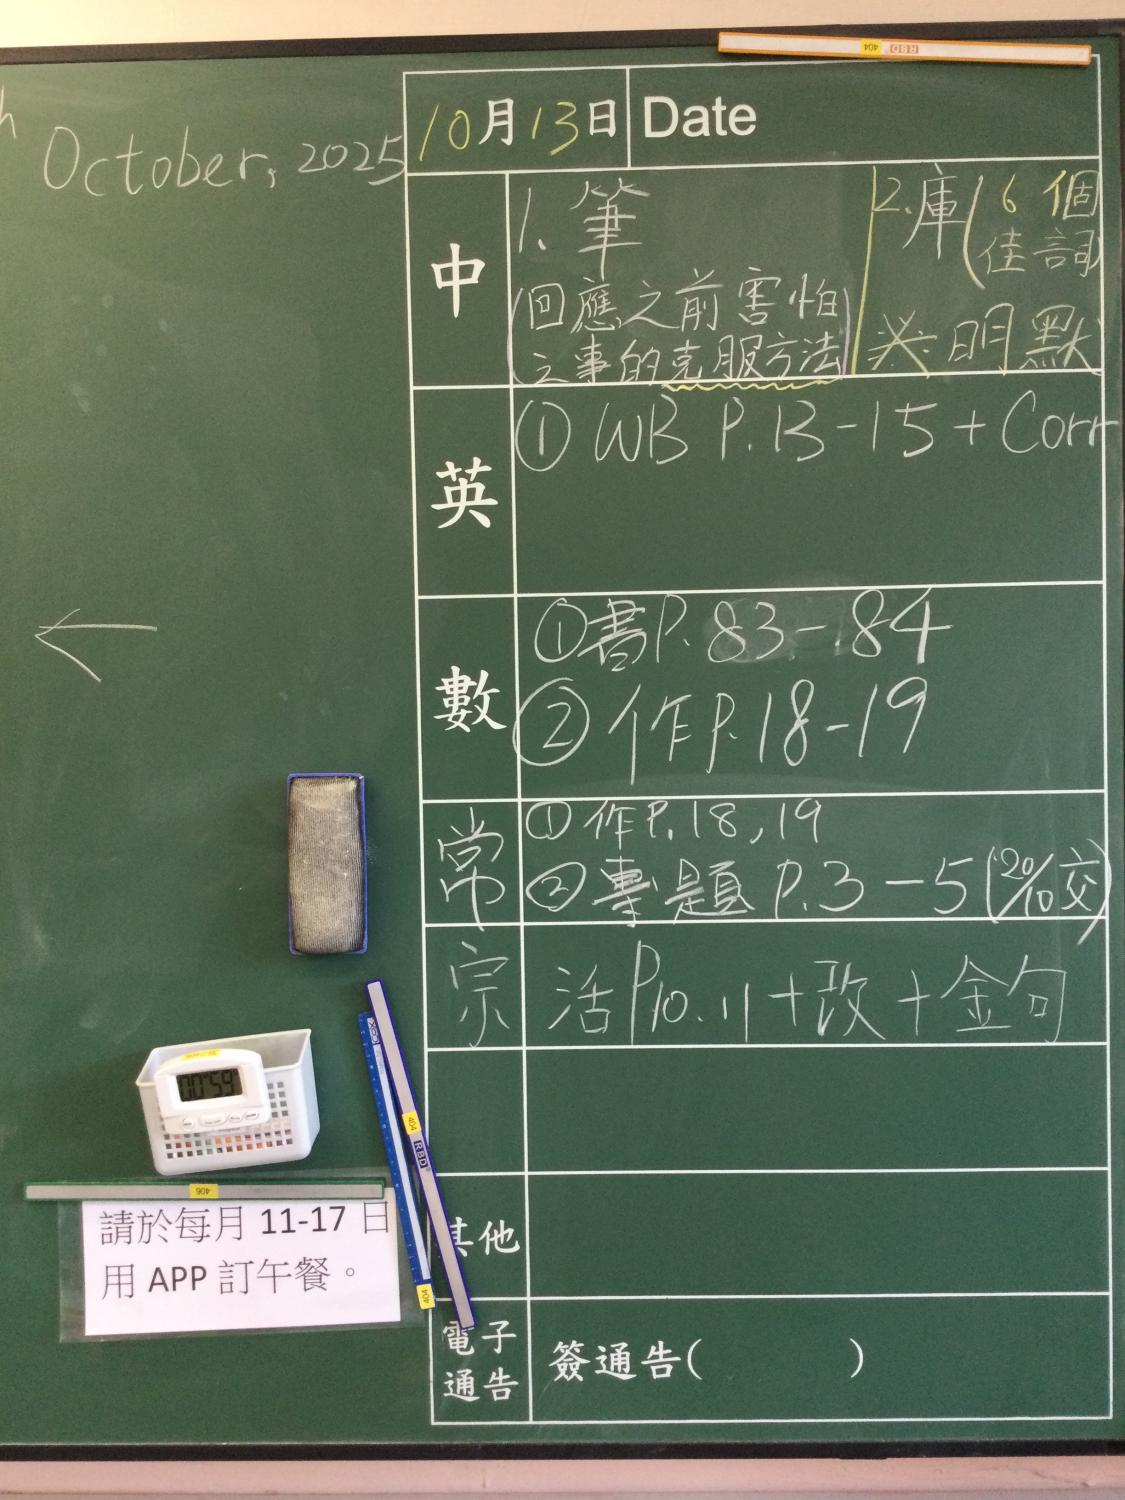 October, 2025
10月13日 Date
中
1. 筆
(回應之前害怕
之事的克服方法)
2. 庫(6個
佳詞)
明默
英
① WB P.13-15 + Corr
數
① 書P.83-84
② 作P.18-19
常
① 作P.18,19
② 專題 P.3-5(20/10交)
宗
活P10.11+改+金句
其他
電子
通告
簽通告( )
00:59
請於每月 11-17 日
用 APP 訂午餐。
404 RBD
404 RBD
404
406